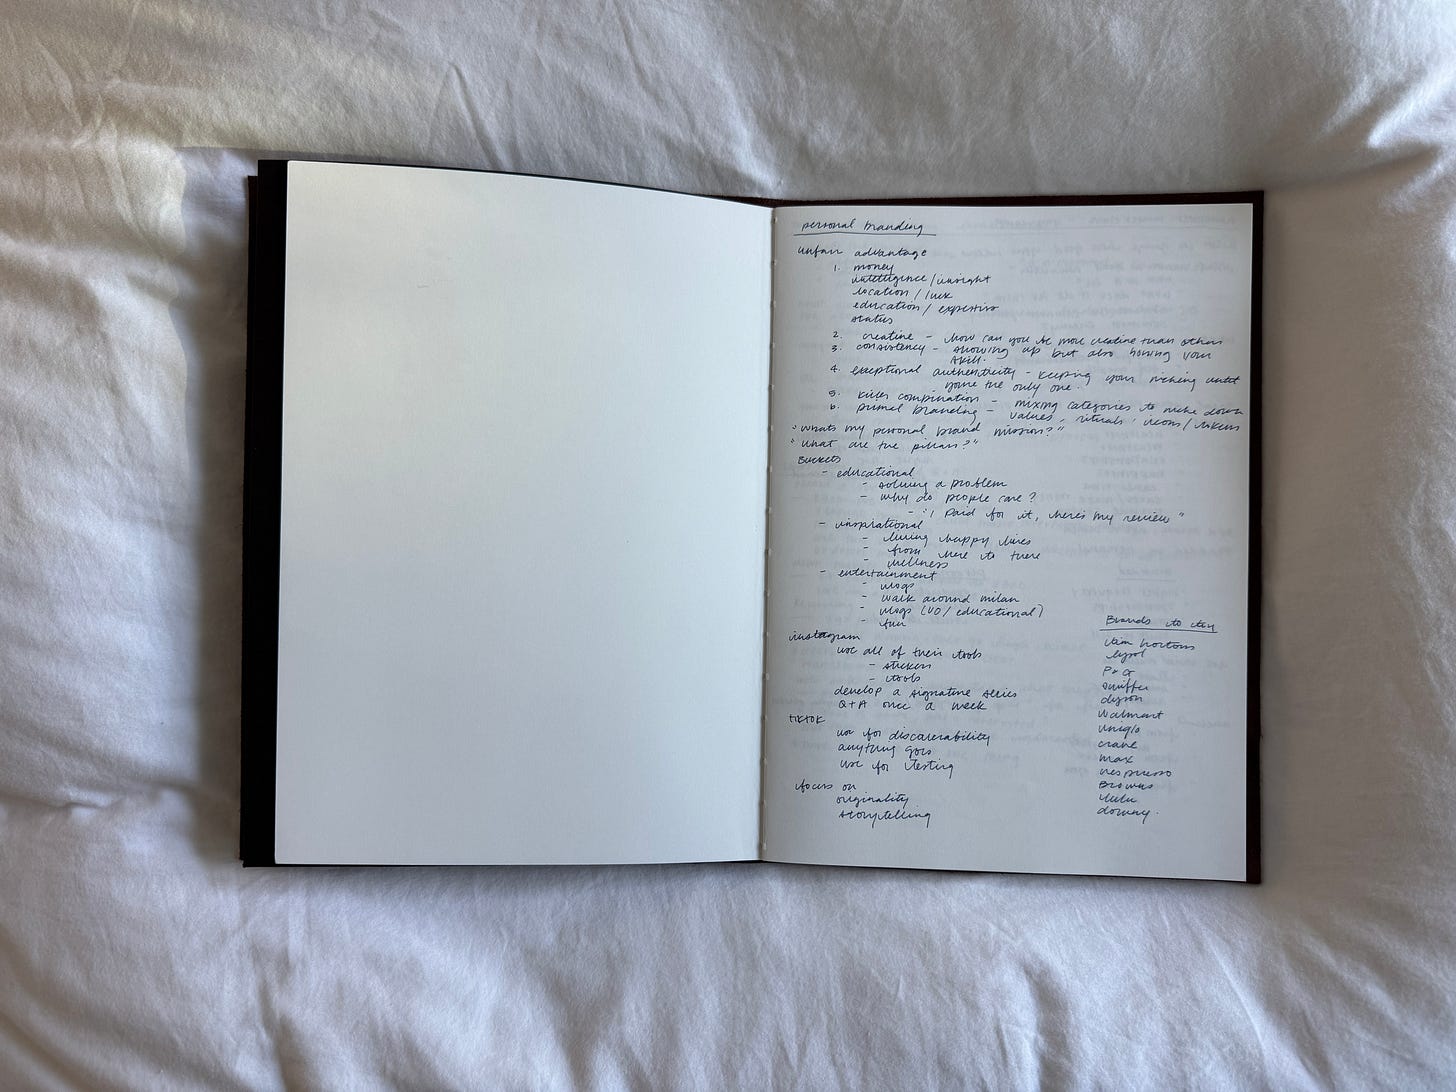 personal branding
unfair advantage
1. money
intelligence/insight
location/luck
education/expertise
status
2. creative - how can you be more creative than others
3. consistency - showing up but also honing your
skill.
4. exceptional authenticity - keeping your niching until
you're the only one.
5. killer combination - mixing categories to niche down
6. primal branding - values, rituals, icons/tokens
"whats my personal brand mission?"
"what are the pillars?"
Buckets
- educational
- solving a problem
- why do people care?
- "I paid for it, here's my review"
- inspirational
- living happy lives
- from here to there
- wellness
- entertainment
- vlogs
- walk around milan
- vlogs (VO/educational)
- fun
instagram
use all of their tools
- stickers
- tools
develop a signature series
Q+A once a week
tiktok
use for discoverability
anything goes
use for testing
focus on
originality
storytelling
Brands to
tim hortons
lysol
P+G
swiffer
dyson
walmart
uniqlo
crave
max
nespresso
Browns
lulu
downy.